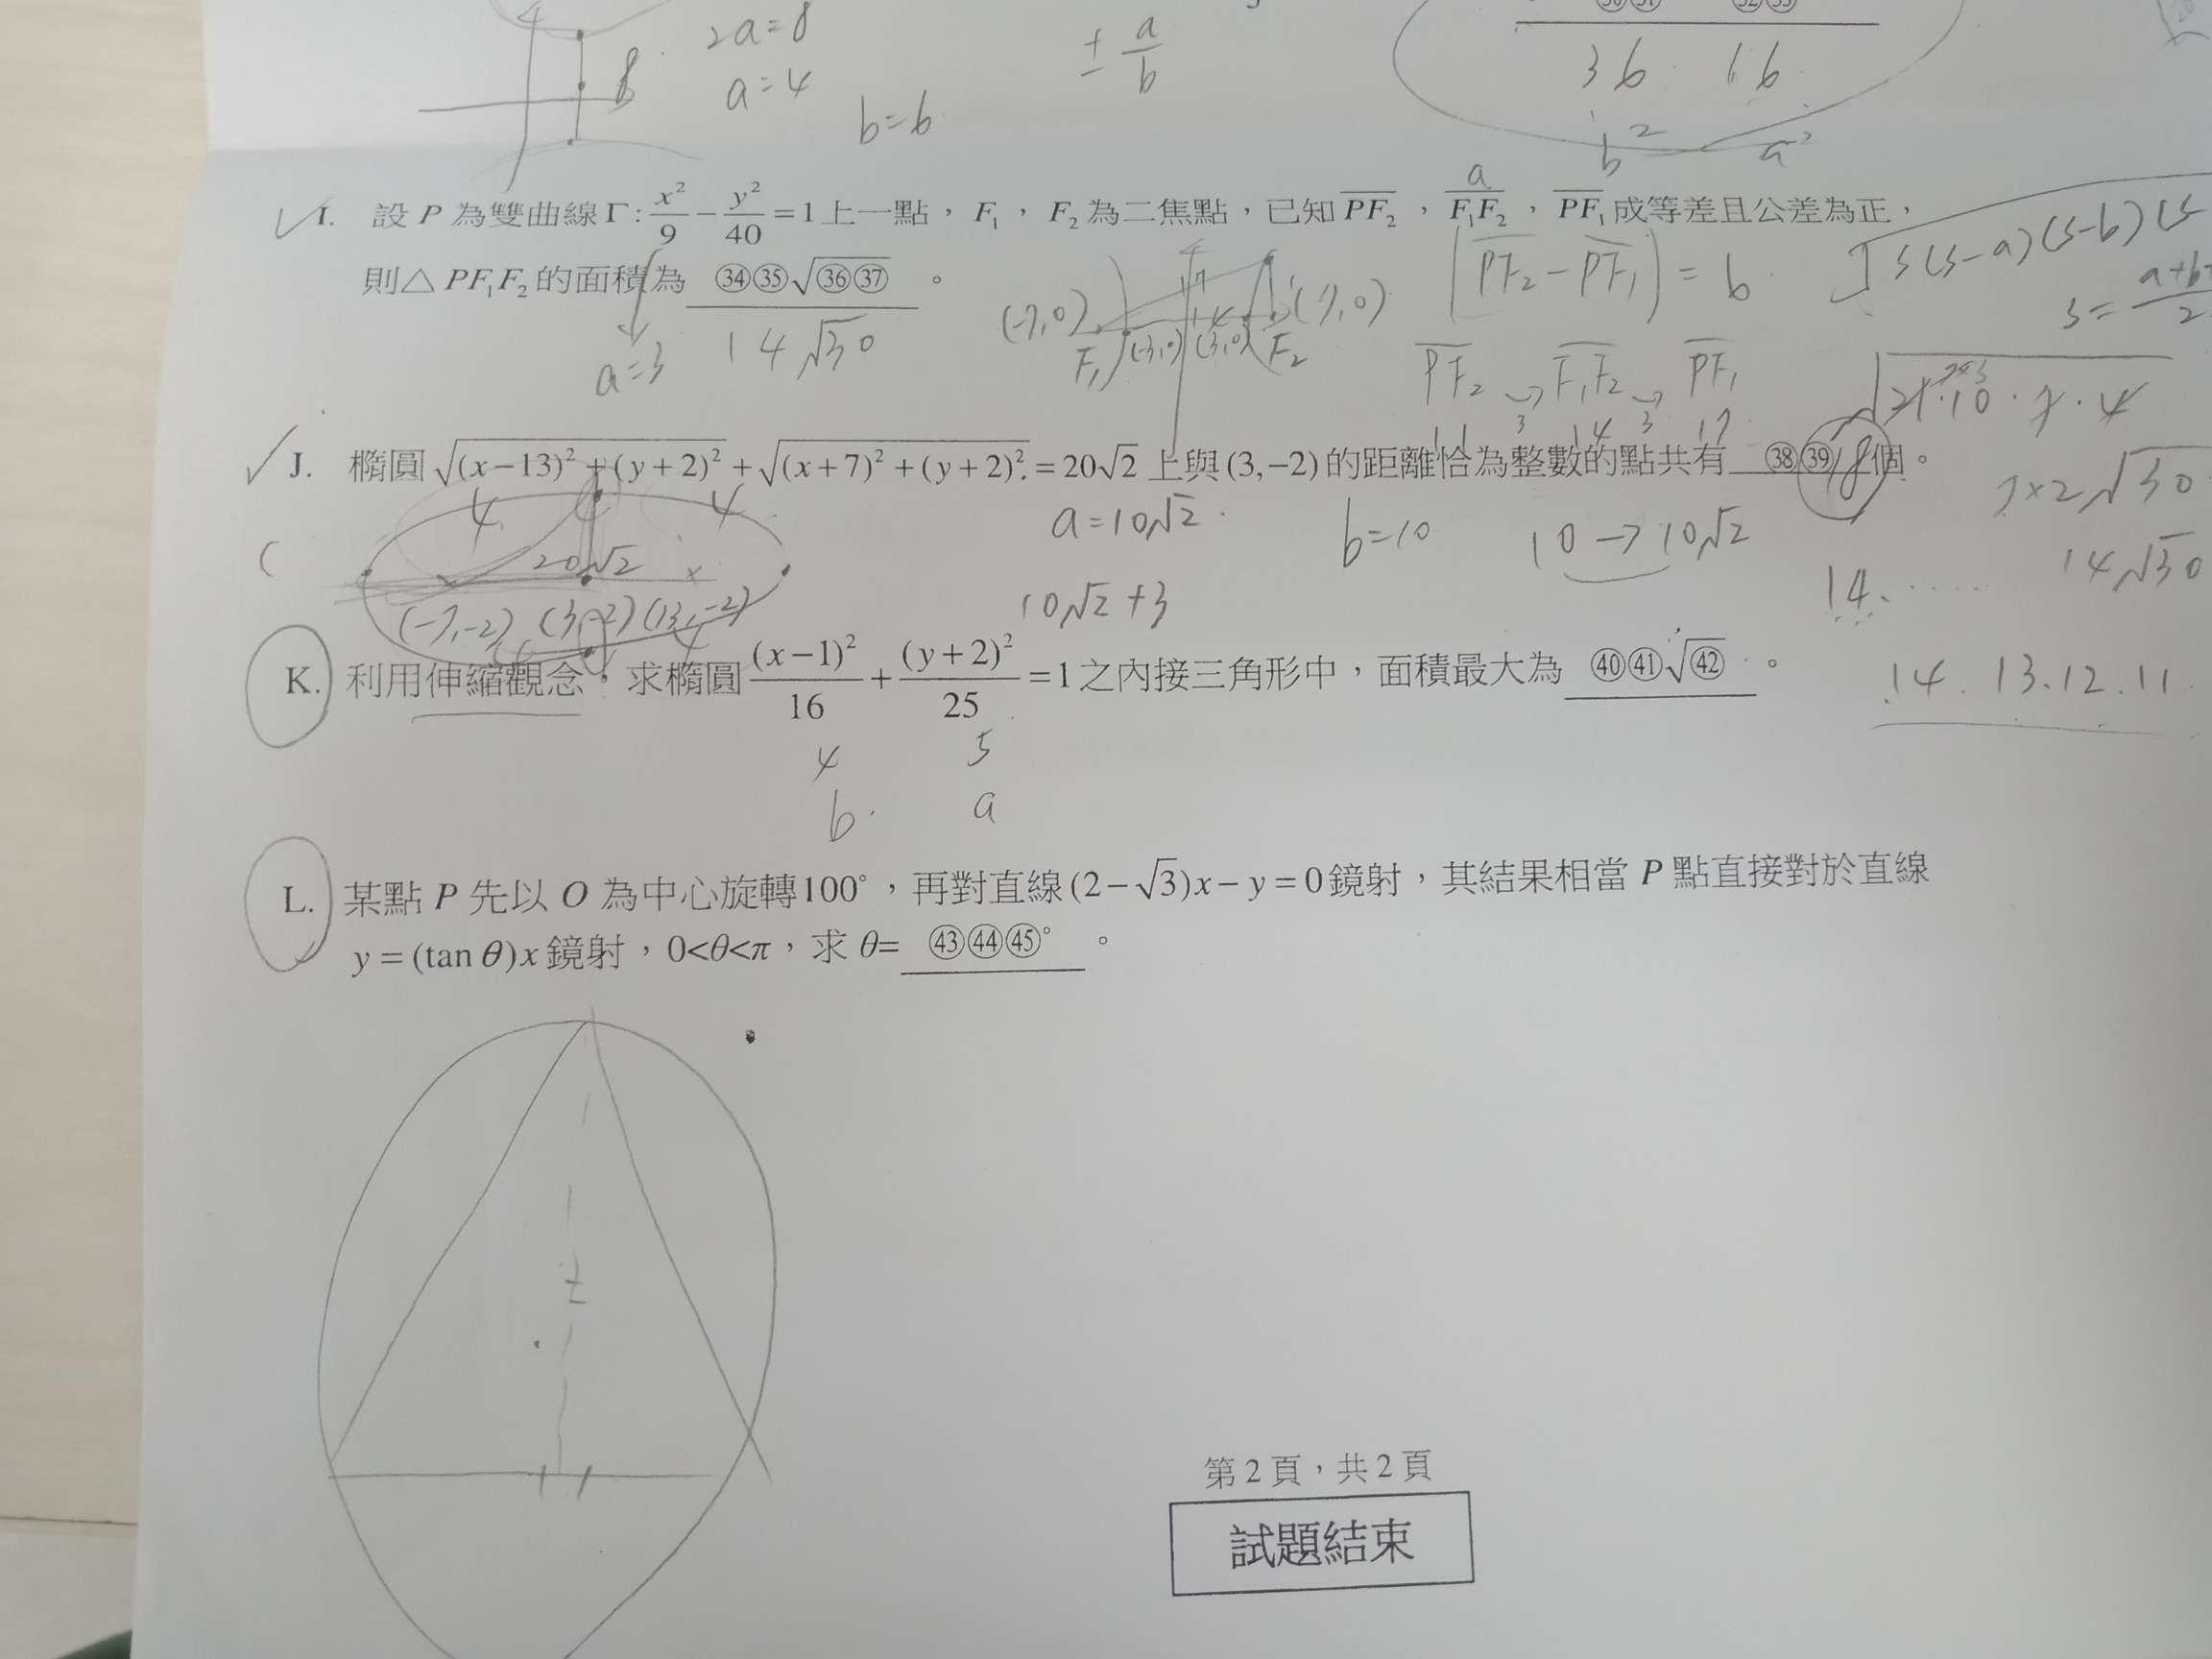 2a=8
a=4
b=6
± a/b
36 16
b² a²
I. 設 P 為雙曲線 Γ: x²/9 − y²/40 = 1 上一點，F₁，F₂ 為二焦點，已知 PF₂，F₁F₂，PF₁ 成等差且公差為正，
則△PF₁F₂ 的面積為 ㉞㉟√㊱㊲ 。
a=3
14√30
(-7,0)
(7,0)
F₁ (-3,0) (3,0) F₂
|PF₂ − PF₁| = 6
PF₂ → F₁F₂ → PF₁
11 3 14 3 17
√s(s-a)(s-b)(s
s = a+b+/2
√21·10·7·4
7×2√30
14√30
J. 橢圓 √(x−13)²+(y+2)² + √(x+7)²+(y+2)² = 20√2 上與 (3,−2) 的距離恰為整數的點共有 ㊳㊴ 個。
18
4 4
20√2
(-7,-2) (3,-2) (13,-2)
a=10√2
b=10
10 → 10√2
10√2+3
14.
14. 13. 12. 11
K. 利用伸縮觀念，求橢圓 (x−1)²/16 + (y+2)²/25 = 1 之內接三角形中，面積最大為 ㊵㊶√㊷ 。
4 5
b a
L. 某點 P 先以 O 為中心旋轉100°，再對直線 (2−√3)x−y=0 鏡射，其結果相當 P 點直接對於直線
y=(tan θ)x 鏡射，0<θ<π，求 θ= ㊸㊹㊺° 。
第 2 頁，共 2 頁
試題結束